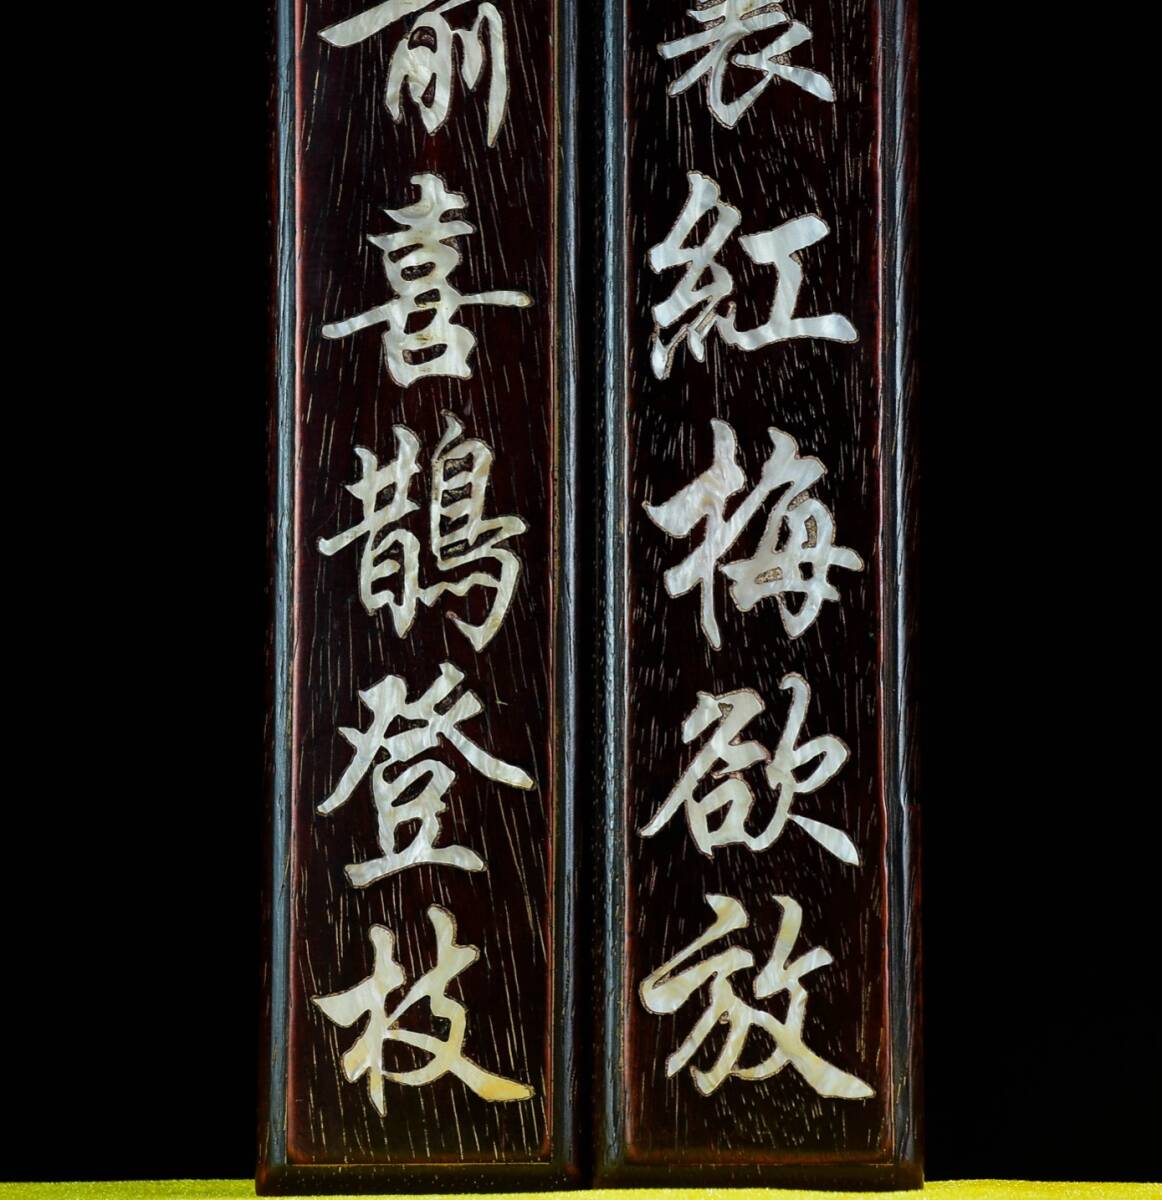 裏紅梅欲放
前喜鵲登枝